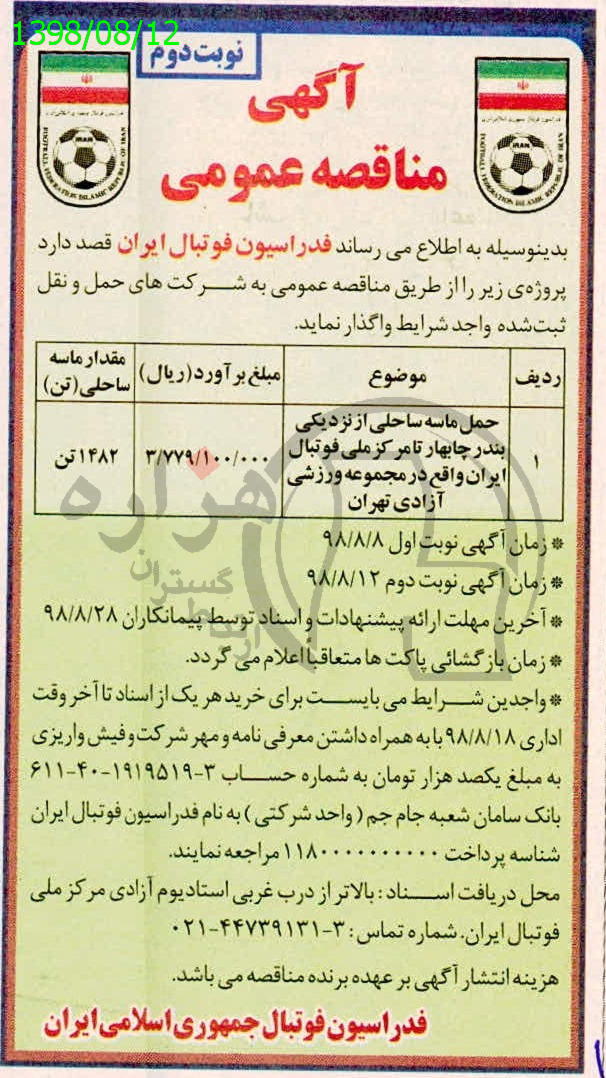 1398/08/12
نوبت دوم
آگهی
مناقصه عمومی
FOOTBALL FEDERATION ISLAMIC REPUBLIC OF IRAN
IRAN
FOOTBALL FEDERATION ISLAMIC REPUBLIC OF IRAN
IRAN
بدینوسیله به اطلاع می رساند فدراسیون فوتبال ایران قصد دارد
پروژه‌ی زیر را از طریق مناقصه عمومی به شرکت های حمل و نقل
ثبت‌شده واجد شرایط واگذار نماید.
ردیف موضوع مبلغ برآورد(ریال) مقدار ماسه ساحلی(تن)
۱ حمل ماسه ساحلی از نزدیکی بندر چابهار تا مرکز ملی فوتبال ایران واقع در مجموعه ورزشی آزادی تهران ۳/۷۷۹/۱۰۰/۰۰۰ ۱۴۸۲ تن
* زمان آگهی نوبت اول ۹۸/۸/۸
* زمان آگهی نوبت دوم ۹۸/۸/۱۲
* آخرین مهلت ارائه پیشنهادات و اسناد توسط پیمانکاران ۹۸/۸/۲۸
* زمان بازگشائی پاکت ها متعاقباً اعلام می گردد.
* واجدین شرایط می بایست برای خرید هر یک از اسناد تا آخر وقت
اداری ۹۸/۸/۱۸ با به همراه داشتن معرفی نامه و مهر شرکت و فیش واریزی
به مبلغ یکصد هزار تومان به شماره حساب ۳-۱۹۱۹۵۱۹-۴۰-۶۱۱
بانک سامان شعبه جام جم (واحد شرکتی) به نام فدراسیون فوتبال ایران
شناسه پرداخت ۱۱۸۰۰۰۰۰۰۰۰۰۰۰ مراجعه نمایند.
محل دریافت اسناد : بالاتر از درب غربی استادیوم آزادی مرکز ملی
فوتبال ایران. شماره تماس : ۳-۴۴۷۳۹۱۳۱-۰۲۱
هزینه انتشار آگهی بر عهده برنده مناقصه می باشد.
فدراسیون فوتبال جمهوری اسلامی ایران
هزاره
گستران